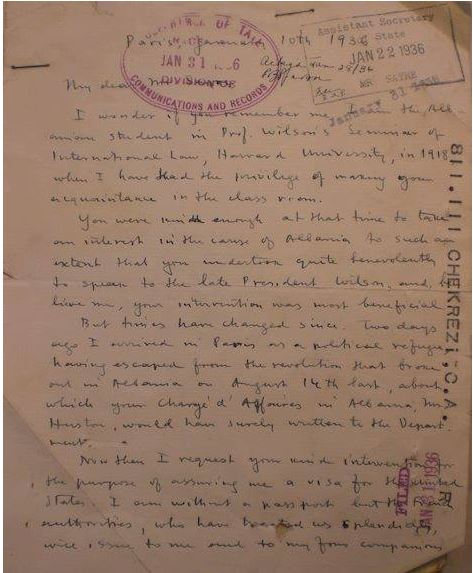 Paris, January 10th 1936
DIVISION OF
JAN 31 1936
COMMUNICATIONS AND RECORDS
Assistant Secretary
of State
JAN 22 1936
MR SAYRE
January 31 1936
My dear
I wonder if you remember me the Alb-
anian student in Prof. Wilson's Seminar of
International Law, Harvard University, in 1918
when I have had the privilege of making your
acquaintance in the class room.
You were kind enough at that time to take
an interest in the cause of Albania to such an
extent that you undertook quite benevolently
to speak to the late President Wilson, and, be-
lieve me, your intervention was most beneficial
But times have changed since. Two days
ago I arrived in Paris as a political refugee,
having escaped from the revolution that broke
out in Albania on August 14th last, about
which your Chargé d'Affaires in Albania, Mr.
Huston, would have surely written to the Depart-
ment.
Now then I request your kind intervention for
the purpose of assuring me a visa for the United
States. I am without a passport but the
authorities, who have treated us splendidly,
will issue to me and to my four companions
811.111 CHEKREZI, C.A.
FILED
JAN 31 1936
R